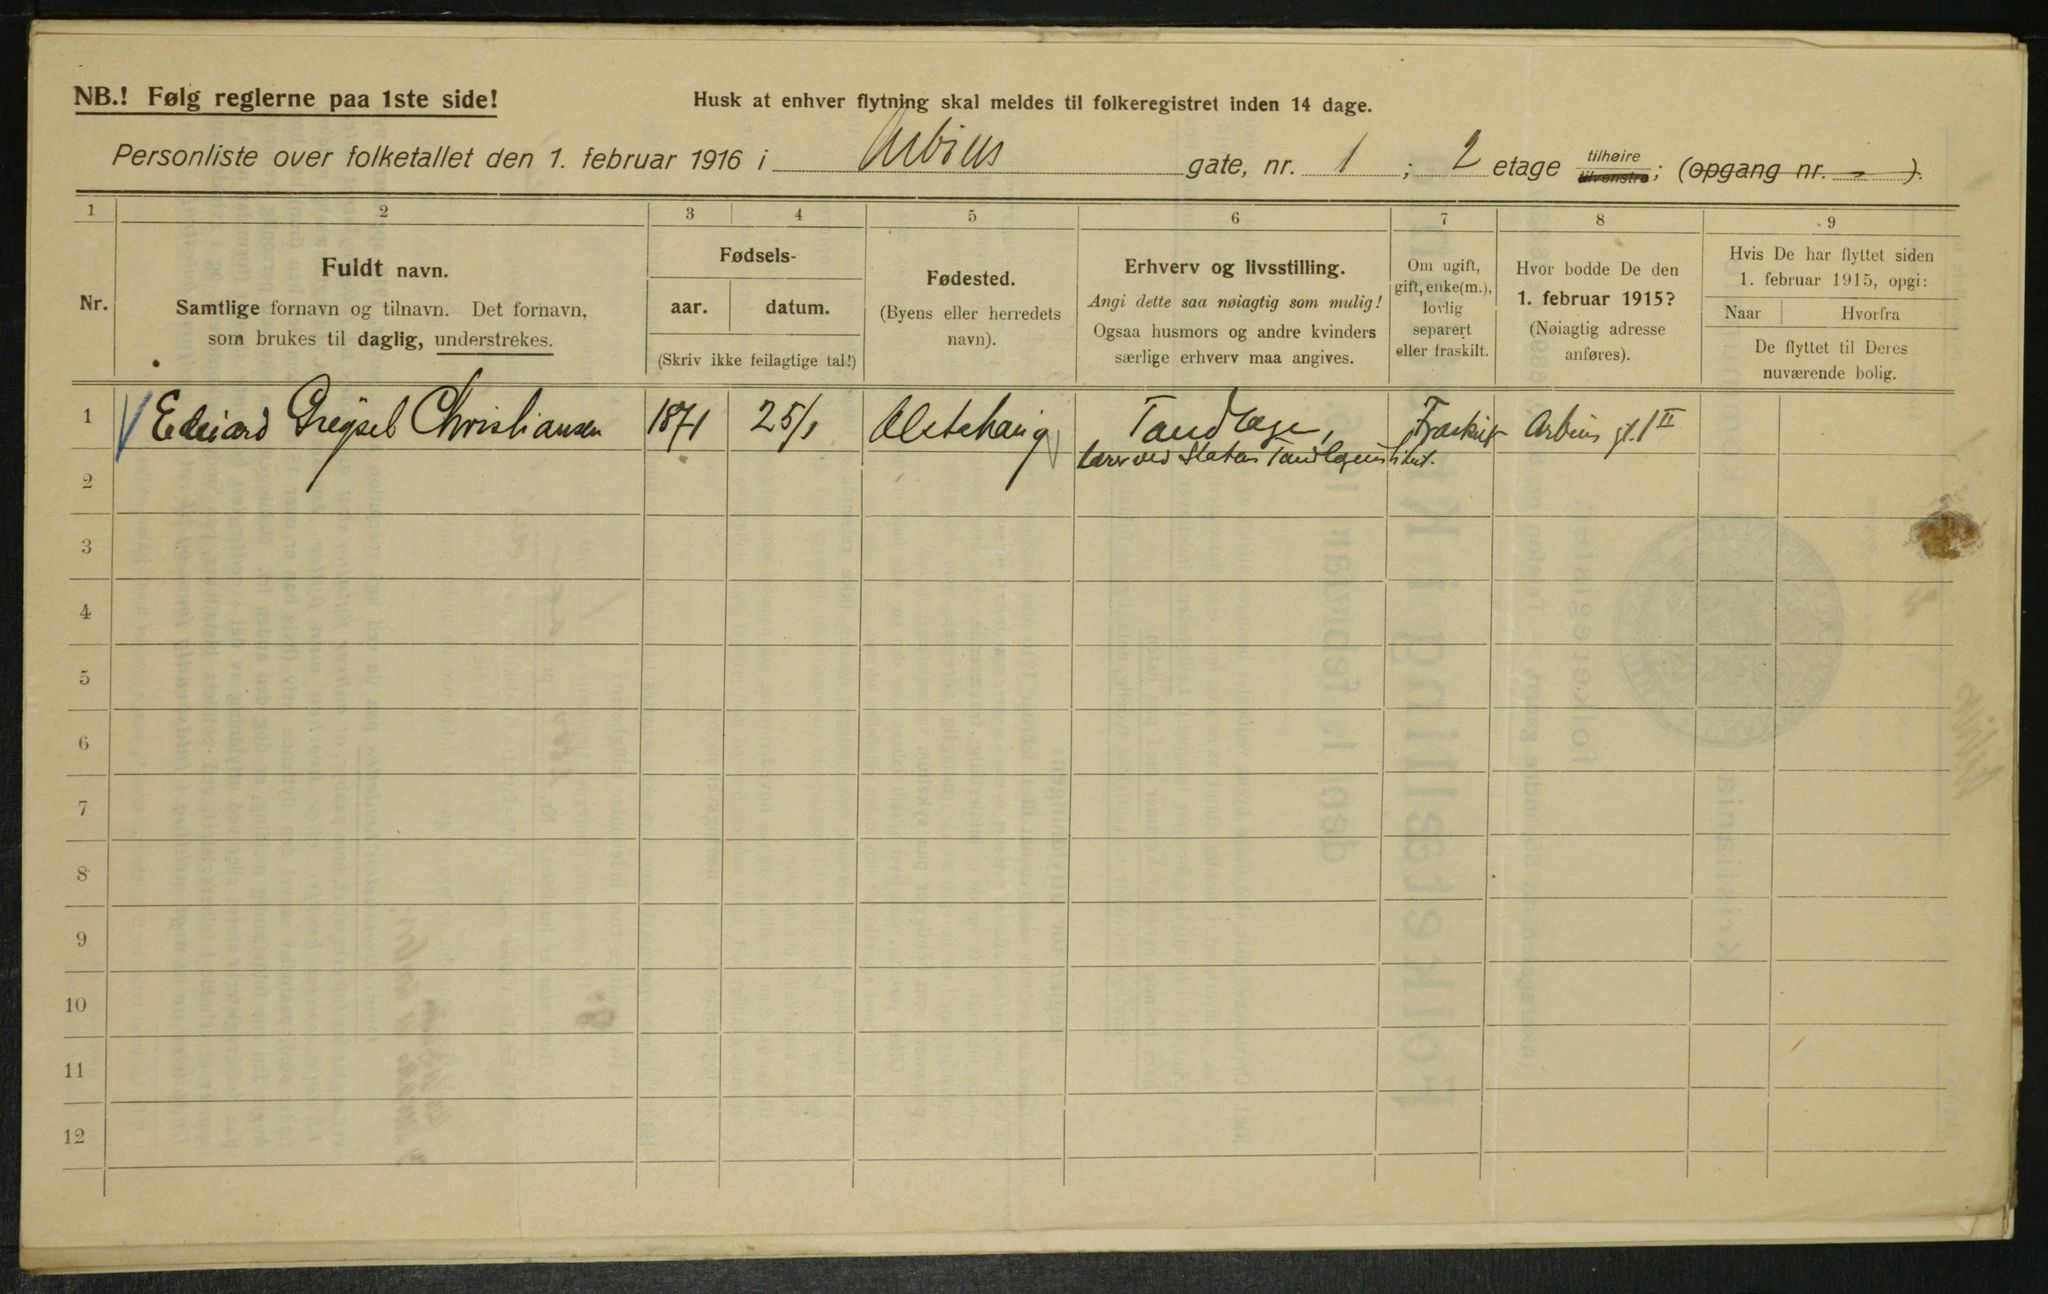 NB.! Følg reglerne paa 1ste side!
Husk at enhver flytning skal meldes til folkeregistret inden 14 dage.
Personliste over folketallet den 1. februar 1916 i Arbins gate, nr. 1 ; 2 etage tilhøire tilvenstre; (opgang nr. - ).
1 2 3 4 5 6 7 8 9
Nr.
Fuldt navn.
Samtlige fornavn og tilnavn. Det fornavn,
som brukes til daglig, understrekes.
Fødsels-
aar. datum.
(Skriv ikke feilagtige tal!)
Fødested.
(Byens eller herredets
navn).
Erhverv og livsstilling.
Angi dette saa nøiagtig som mulig!
Ogsaa husmors og andre kvinders
særlige erhverv maa angives.
Om ugift,
gift, enke(m.),
lovlig
separert
eller fraskilt.
Hvor bodde De den
1. februar 1915?
(Nøiagtig adresse
anføres).
Hvis De har flyttet siden
1. februar 1915, opgi:
Naar Hvorfra
De flyttet til Deres
nuværende bolig.
1 Edvard Christiansen 1871 25/1 Tandlæge, Fraskilt Arbins gt. 1 II
lærer ved Statens Tandlægeinstitut.
2
3
4
5
6
7
8
9
10
11
12